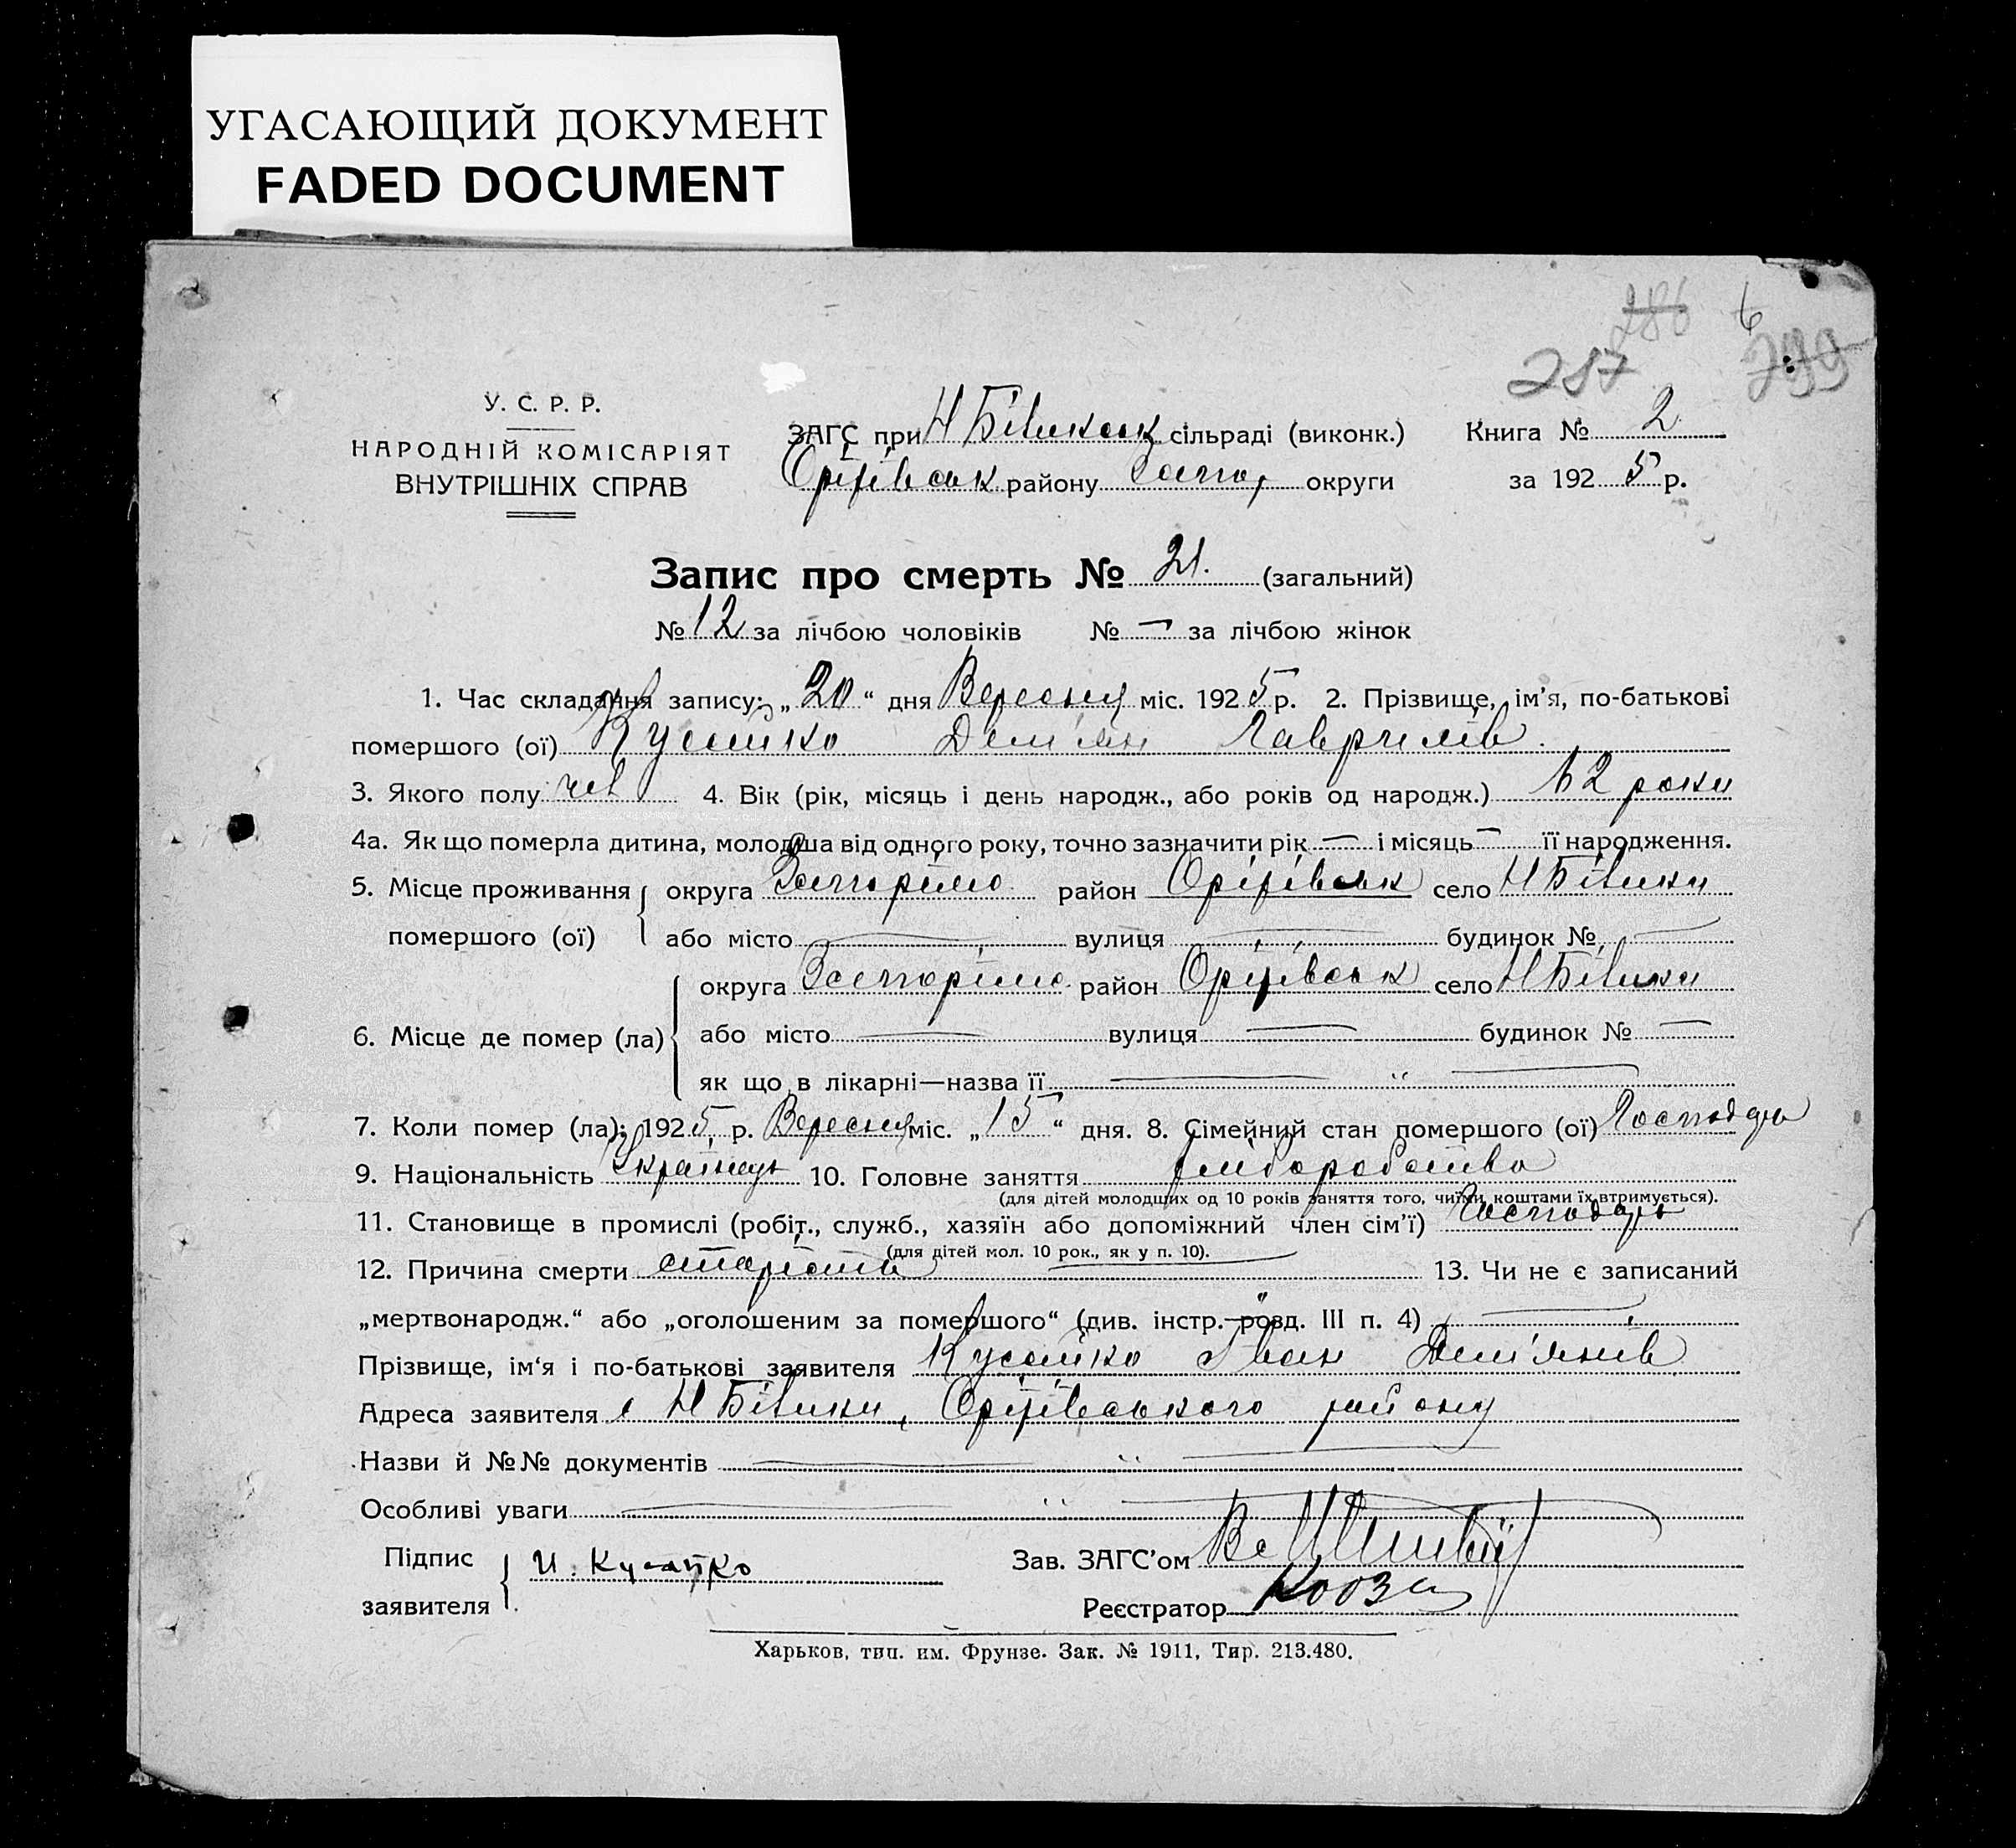 УГАСАЮЩИЙ ДОКУМЕНТ
FADED DOCUMENT
286 6
287 299
У. С. Р. Р.
НАРОДНІЙ КОМІСАРІЯТ
ВНУТРІШНІХ СПРАВ
ЗАГС при сільраді (виконк.) Книга № 2
Оріхівськ району Запор, округи за 1925 р.
Запис про смерть № 21. (загальний)
№ 12 за лічбою чоловіків № — за лічбою жінок
1. Час складання запису: „20“ дня Вересня міс. 1925 р. 2. Прізвище, ім’я, по-батькові
помершого (ої) Кусайко Дем'ян Гаврилів.
3. Якого полу чол 4. Вік (рік, місяць і день народж., або років од народж.) 62 роки
4а. Як що померла дитина, молодша від одного року, точно зазначити рік — і місяць — її народження.
5. Місце проживання округа Запоріжжо район Оріхівськ село
помершого (ої) або місто — вулиця — будинок № —
округа Запоріжжо район Оріхівськ село
6. Місце де помер (ла) або місто — вулиця — будинок № —
як що в лікарні—назва її — „ —
7. Коли помер (ла): 1925 р. Вересня міс. „15“ дня. 8. Сімейний стан помершого (ої) Господарь
9. Національність Українець 10. Головне заняття хліборобство
(для дітей молодших од 10 років заняття того, чиїми коштами їх втримується).
11. Становище в промислі (робіт., служб., хазяїн або допоміжний член сім’ї) Господарь
(для дітей мол. 10 рок., як у п. 10).
12. Причина смерти старість — 13. Чи не є записаний
„мертвонародж.“ або „оголошеним за помершого“ (див. інстр.—розд. III п. 4) —
Прізвище, ім‘я і по-батькові заявителя Кусайко Іван Дем'янів
Адреса заявителя Оріхівського району
Назви й №№ документів — „ —
Особливі уваги — „ —
Підпис И. Кусайко Зав. ЗАГС’ом
заявителя Реєстратор
Харьков, тип. им. Фрунзе. Зак. № 1911, Тир. 213.480.